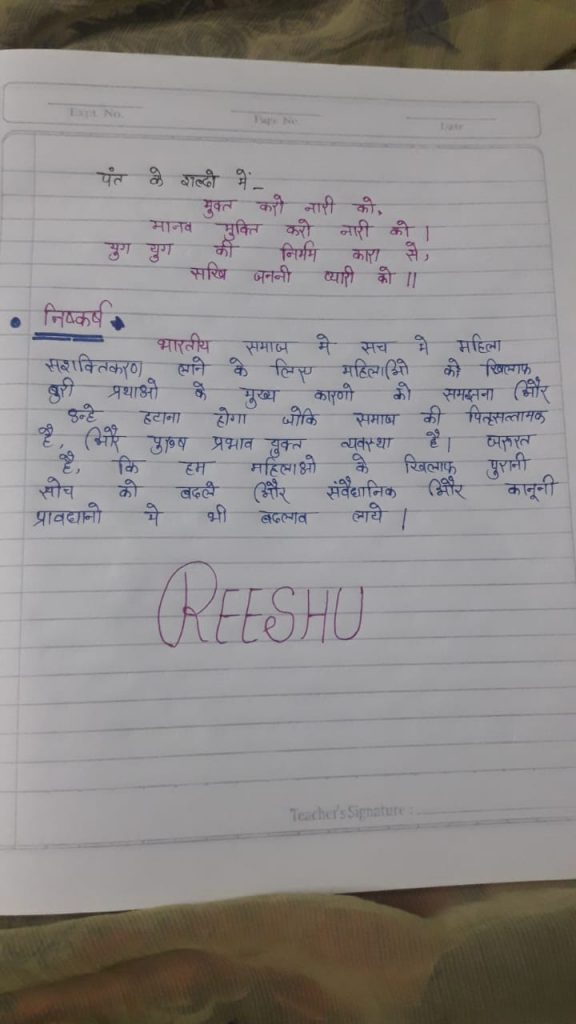 Expt. No.
Page No.
Date
पंत के शब्दो में -
मुक्त करो नारी को,
मानव मुक्ति करो नारी को ।
युग युग की निर्मम कारा से,
सखि जननी प्यारी को ।।
निष्कर्ष
भारतीय समाज मे सच मे महिला
सशक्तिकरण लाने के लिए महिलाओ को खिलाफ
बुरी प्रथाओ के मुख्य कारणो को समझना और
उन्हे हटाना होगा जोकि समाज की पितृसत्तामक
है, और पुरुष प्रभाव युक्त व्यवस्था है। जरुरत
है, कि हम महिलाओ के खिलाफ पुरानी
सोच को बदले और संवैधानिक और कानूनी
प्रावधानो मे भी बदलाव लाये |
REESHU
Teacher's Signature :